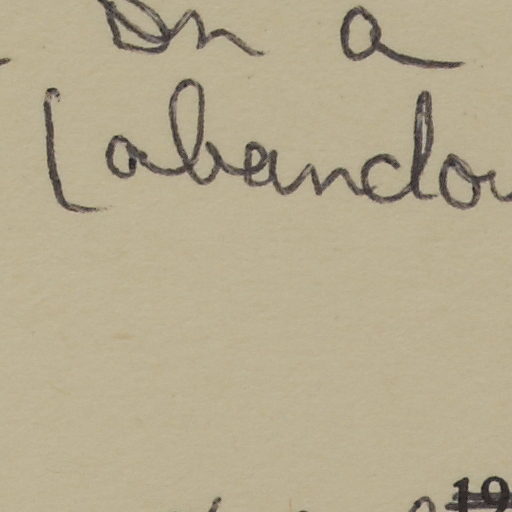 on a
(abandon
19